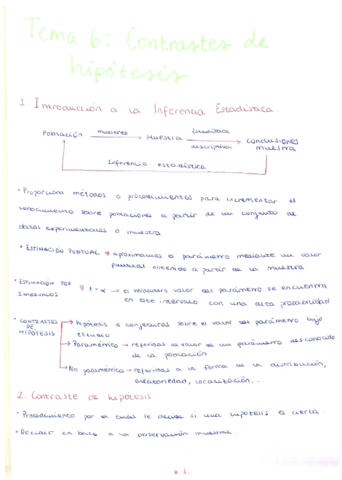 Tema 6: Contrastes de
hipótesis
1. Introducción a la Inferencia Estadística.
Población muestreo Muestra Estadística descriptiva Conclusiones muestra
Inferencia estadística
• Proporciona métodos o procedimientos para incrementar el
conocimiento sobre poblaciones a partir de un conjunto de
datos experimentales o muestra
* ESTIMACIÓN PUNTUAL → aproximamos el parámetro mediante un valor
puntual obtenido a partir de la muestra
• ESTIMACIÓN POR INTERVALOS 1 - α → el verdadero valor del parámetro se encuentra
en este intervalo con una alta probabilidad
• CONTRASTES DE HIPÓTESIS → hipótesis o conjeturas sobre el valor del parámetro bajo
estudio
→ Paramétrico → referidas al valor de un parámetro desconocido
de la población
→ No paramétrico → referidas a la forma de la distribución,
aleatoriedad, localización, ...
2. Contraste de hipótesis
• Procedimiento por el cual se decide si una hipótesis es cierta.
• Decidir en base a la observación muestral.
1.